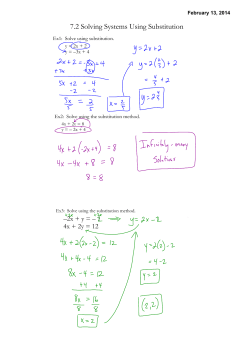 February 13, 2014
7.2 Solving Systems Using Substitution
Ex1: Solve using substitution.
y = 2x + 2
y = -3x + 4
y = 2x + 2
2x + 2 = -3x + 4
y = 2(2/5) + 2
+3x +3x
5x + 2 = 4
= 4/5 + 2
-2 -2
5x/5 = 2/5
x = 2/5
y = 2 4/5
Ex2: Solve using the substitution method.
4x + 2y = 8
y = -2x + 4
4x + 2(-2x+4) = 8
4x - 4x + 8 = 8
8 = 8
Infinitely-many
Solutions
Ex3: Solve using the substitution method.
+2x +2x
-2x + y = -2
y = 2x - 2
4x + 2y = 12
4x + 2(2x-2) = 12
4x + 4x - 4 = 12
8x - 4 = 12
+4 +4
8x/8 = 16/8
x = 2
y = 2(2) - 2
= 4 - 2
y = 2
(2,2)